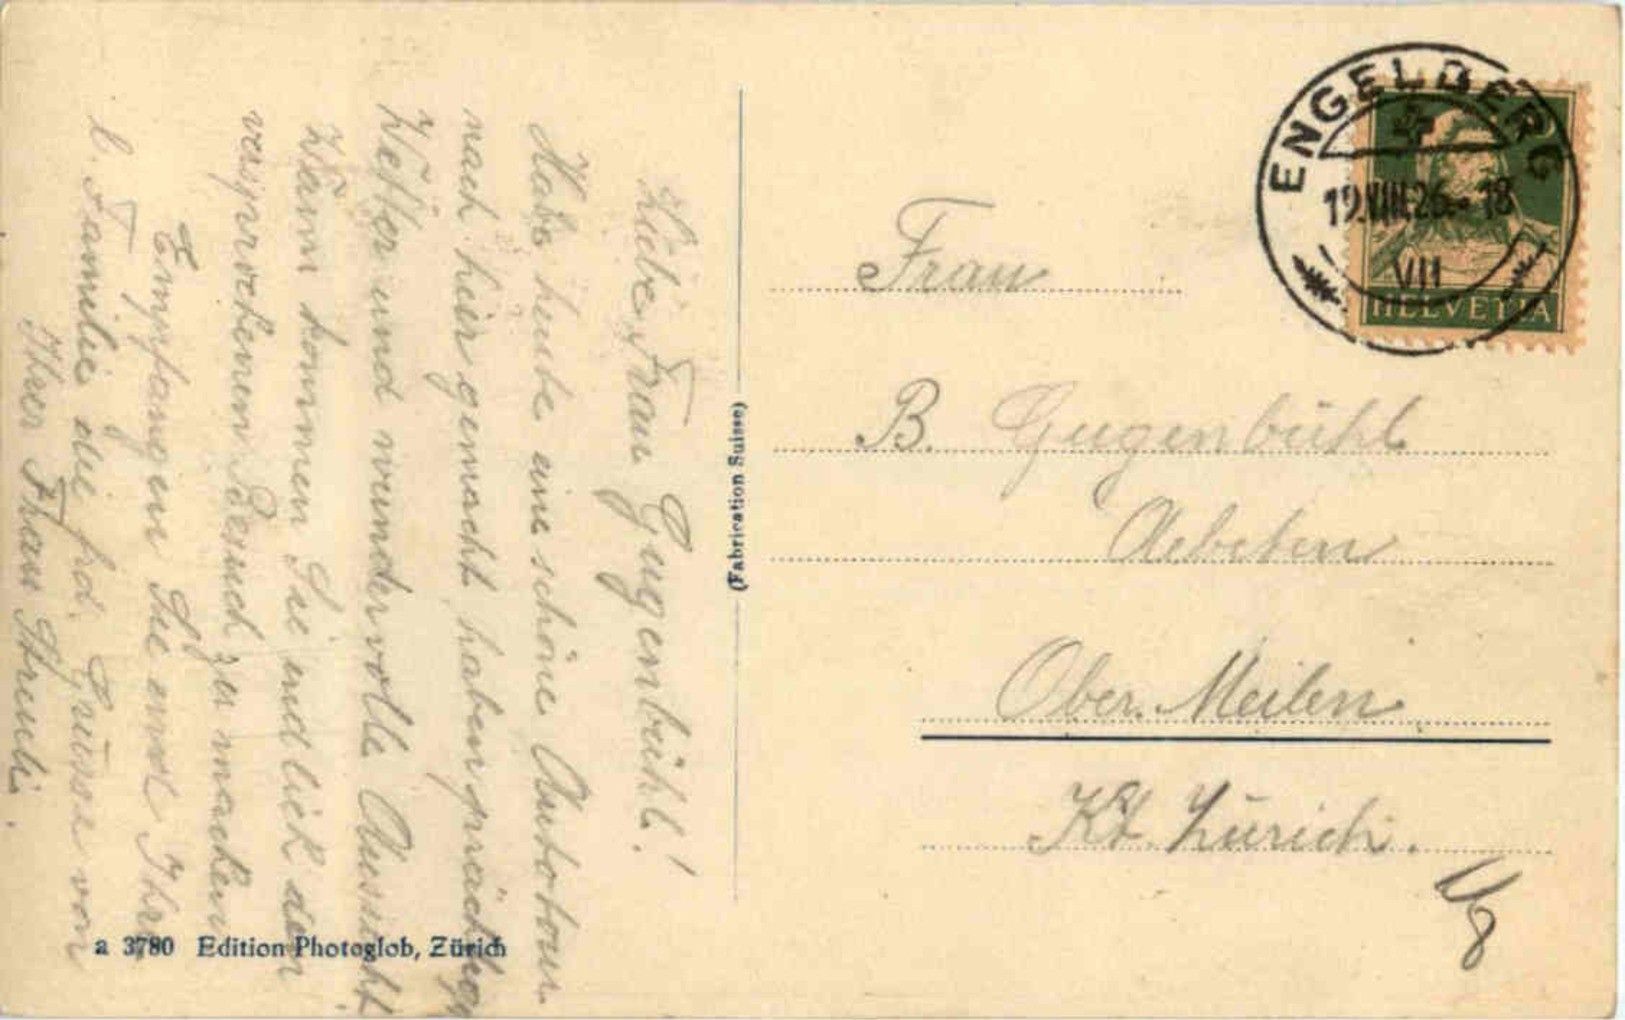 Liebe Frau Gugenbühl!
Habe heute eine schöne Autotour
nach hier gemacht, haben prächtiges
Wetter und wundervolle Aussicht
Wann kommen Sie endlich den
versprochenen Besuch zu machen
Empfangen Sie und Ihre
l. Familie die hrd. Grüsse von
Ihrer Frau Streuli.
a 3780 Edition Photoglob, Zürich
(Fabrication Suisse)
ENGELBERG
19.VIII.26.-18
VII
HELVETIA
Frau
B. Gugenbühl
Aebleten
Ober. Meilen
Kt. Zürich.